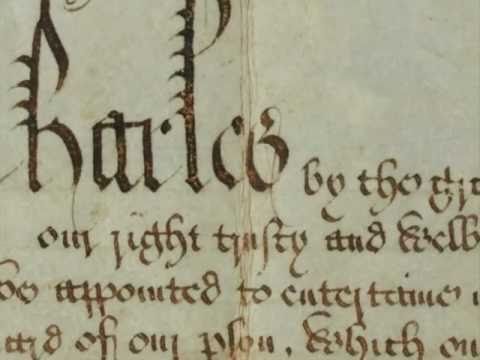 Charles by the gr
our right trusty and welb
be appointed to entertaine
ard of our pson, which ou